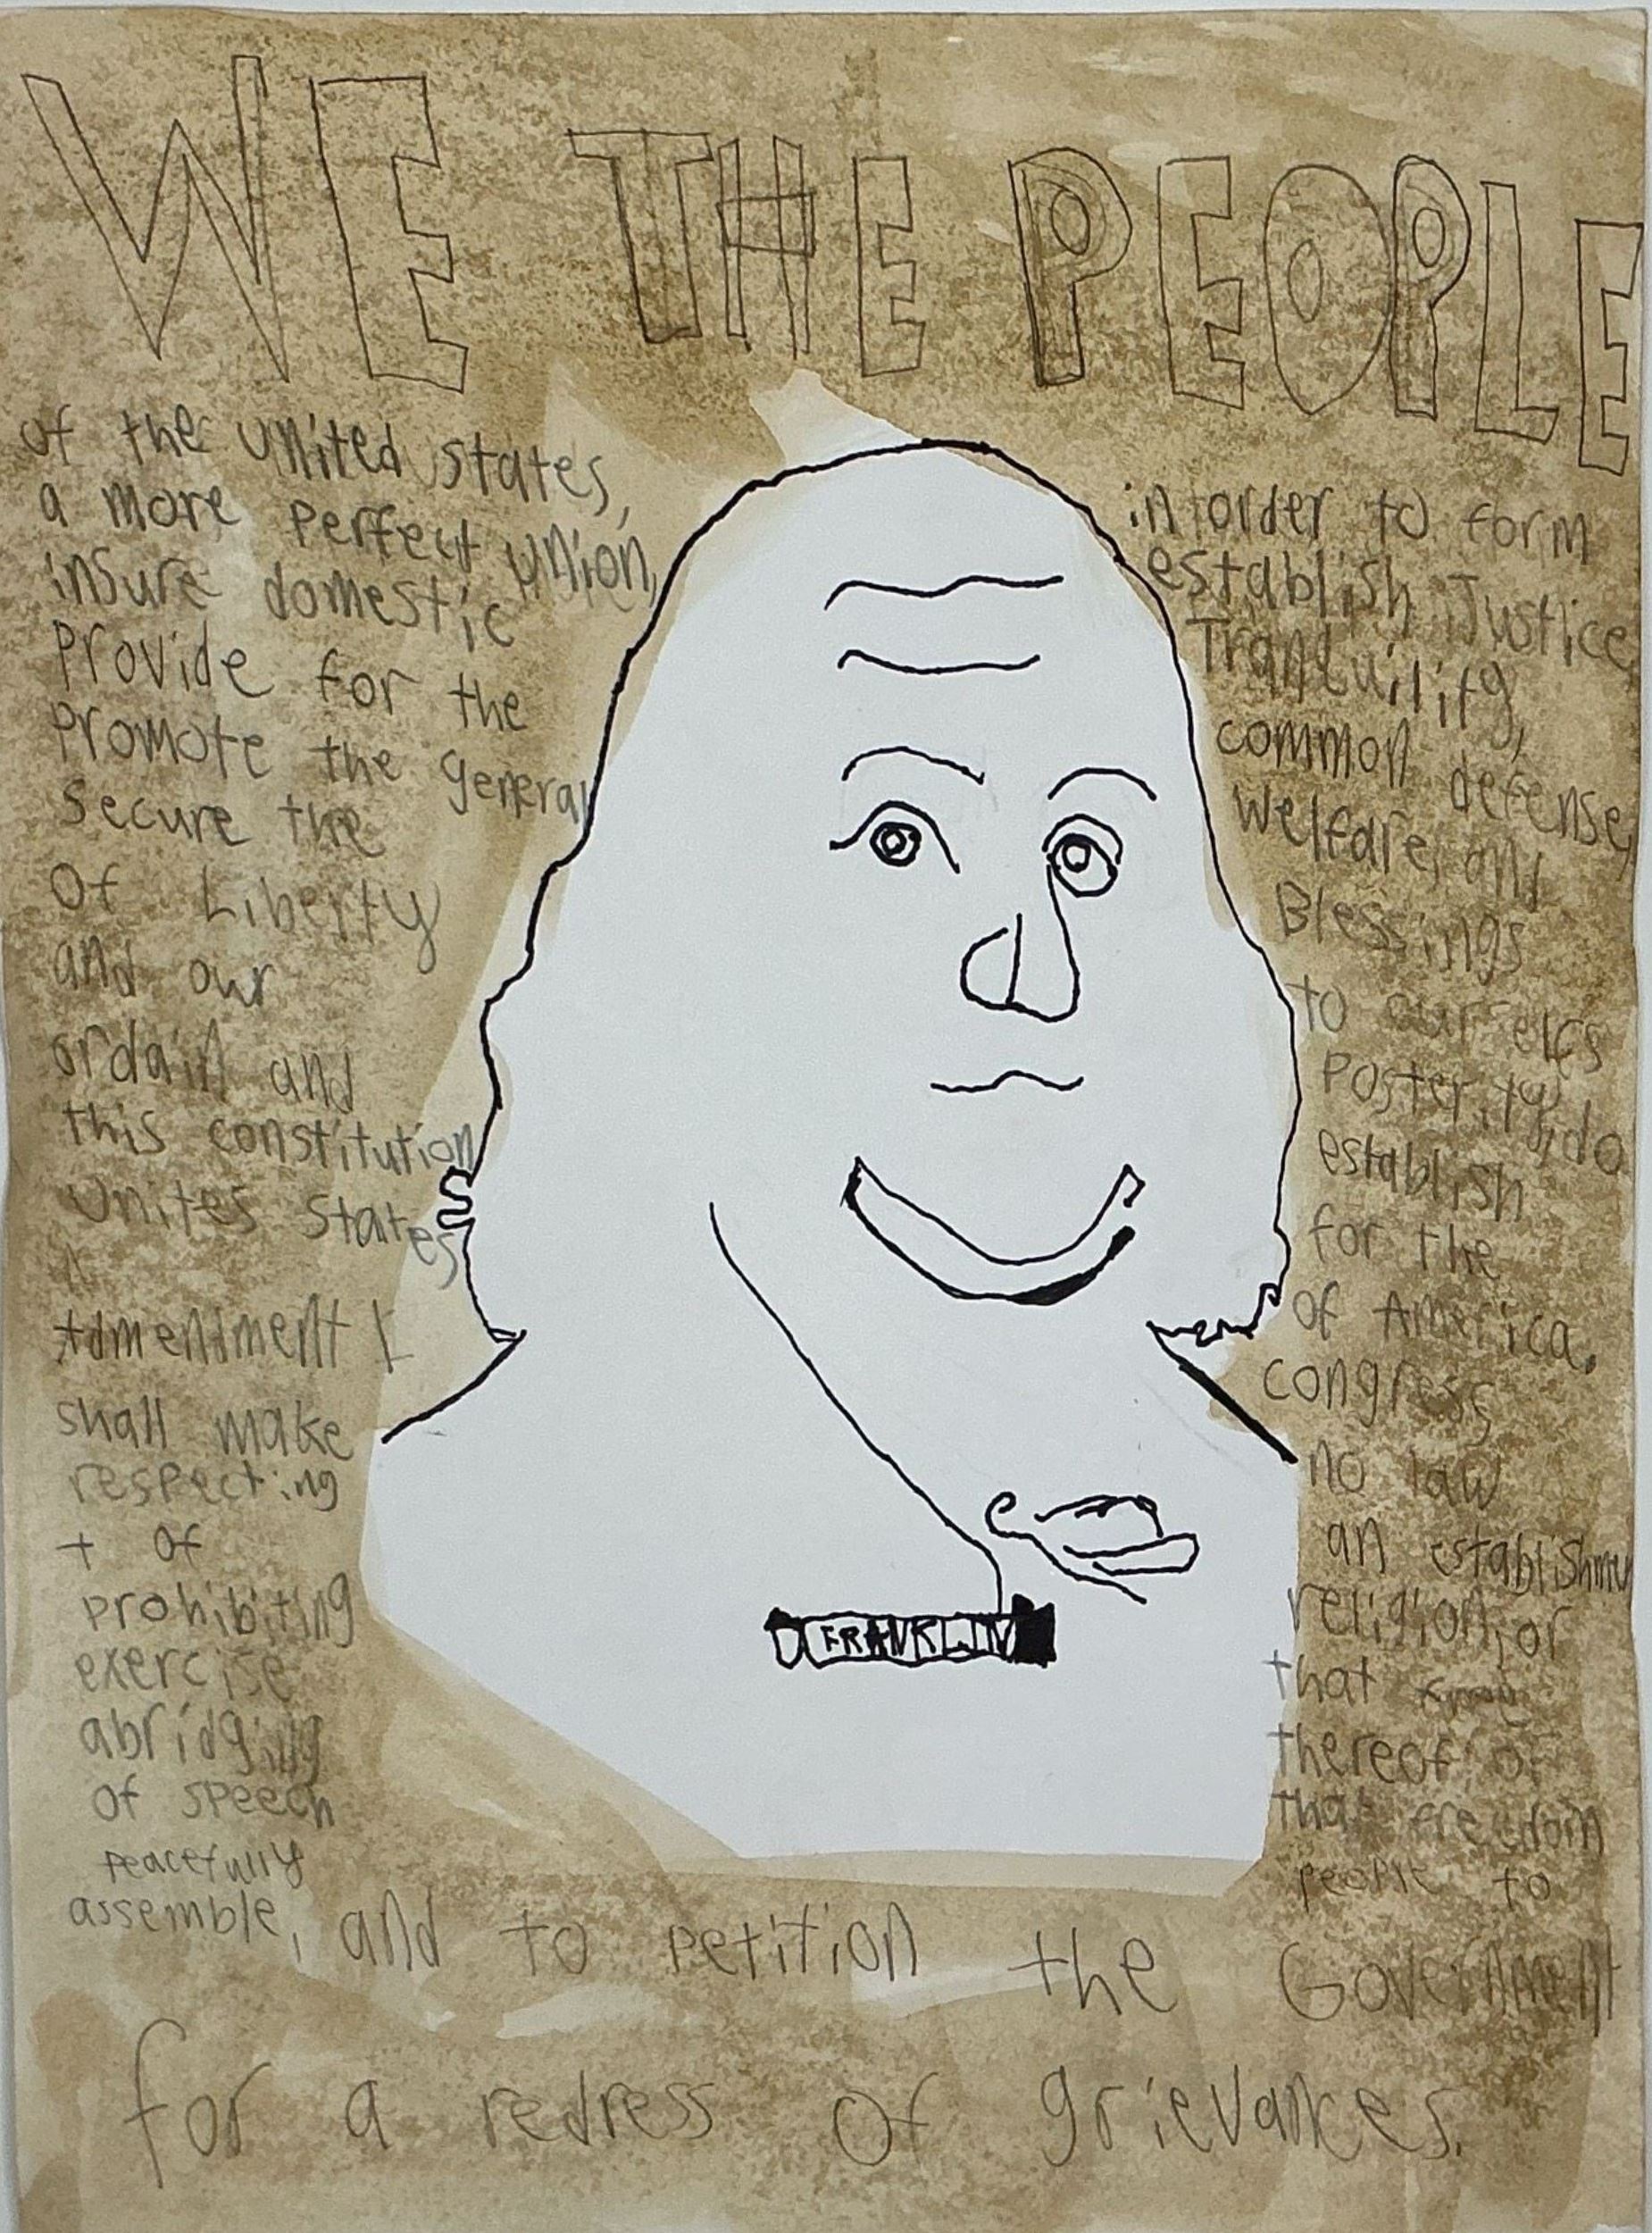 WE THE PEOPLE
of the United States, in order to form
a more perfect union, establish Justice
insure domestic Tranquility,
Provide for the common defense,
Promote the general welfare, and
Secure the Blessings
Of Liberty to ourselfs
and our Posterity, do
ordain and establish
this constitution for the
Unites States of America.
Admendment I congress
shall make no law
respecting an establishmu
+ of religion, or
prohibiting that
exercise thereof of
abridging that freedom
of speech people to
peacefully
assemble, and to petition the Government
for a redress of grievances.
FRANKLIN